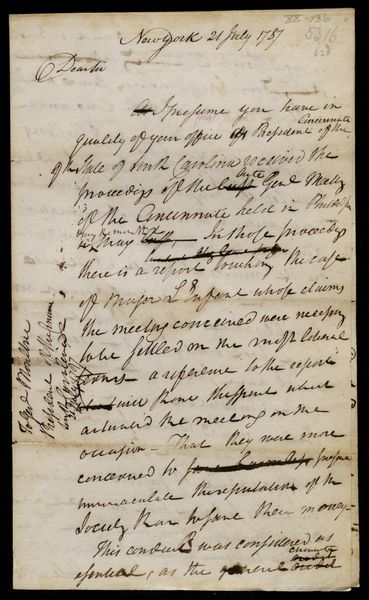 XX-136
5316
New york 21 July 1787
Dear sir
I presume you have in
quality of your office as President of the Cincinnati
of the State of South Carolina received the
proceedings of the late Genl Meeting
of the Cincinnati held in Philada
in May In those proceedings
there is a report touching the case
of Major L'Enfant whose claims
the meeting conceived were necessary
to be settled on the most liberal
terms – a reference to the report
will shew the spirit which
actuated the meeting on the
occasion – That they were more
concerned to preserve
immaculate the reputation of the
Society than to save their money –
This conduct was considered as
essential, as the general character
To Genl Moultrie
President of the Cincinnati